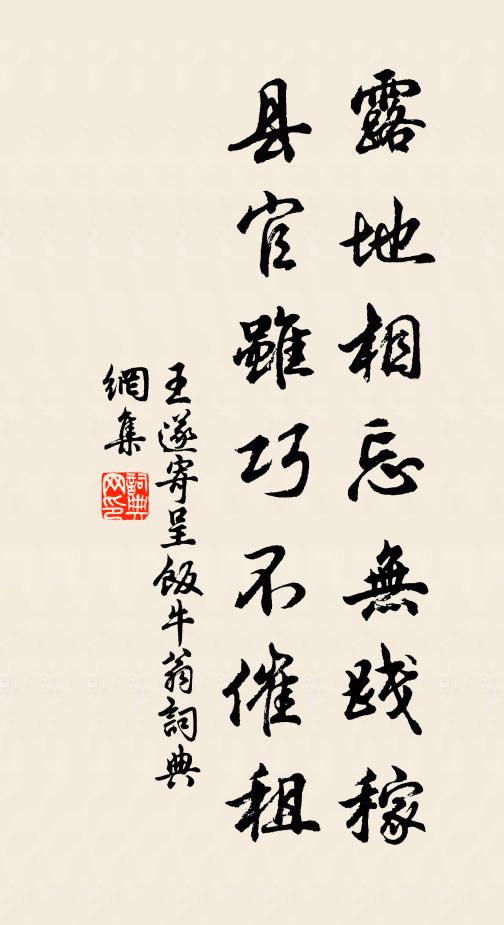 露地相忘無践稼
县官雖巧不催租
王遂寄呈飯牛翁詞典
網集
詞典
网印